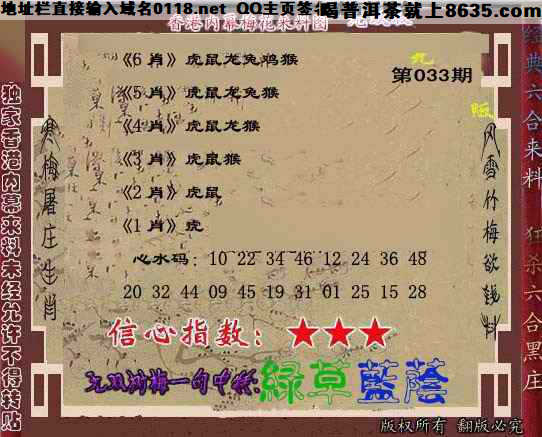 地址栏直接输入域名0118.net QQ主页签名
喝普洱茶就上8635.com
香港内幕梅花来料图
第033期
《6 肖》虎鼠龙兔鸡猴
《5 肖》虎鼠龙兔猴
《4 肖》虎鼠龙猴
《3 肖》虎鼠猴
《2 肖》虎鼠
《1 肖》虎
心水码：10 22 34 46 12 24 36 48
20 32 44 09 45 19 31 01 25 15 28
信心指数：★★★
一句中特:綠草藍蔭
版权所有 翻版必究
独家香港内幕来料未经允许不得转贴
寒梅屠庄生肖
风雪竹梅欲钱料
经典六合来料 狂杀六合黑庄